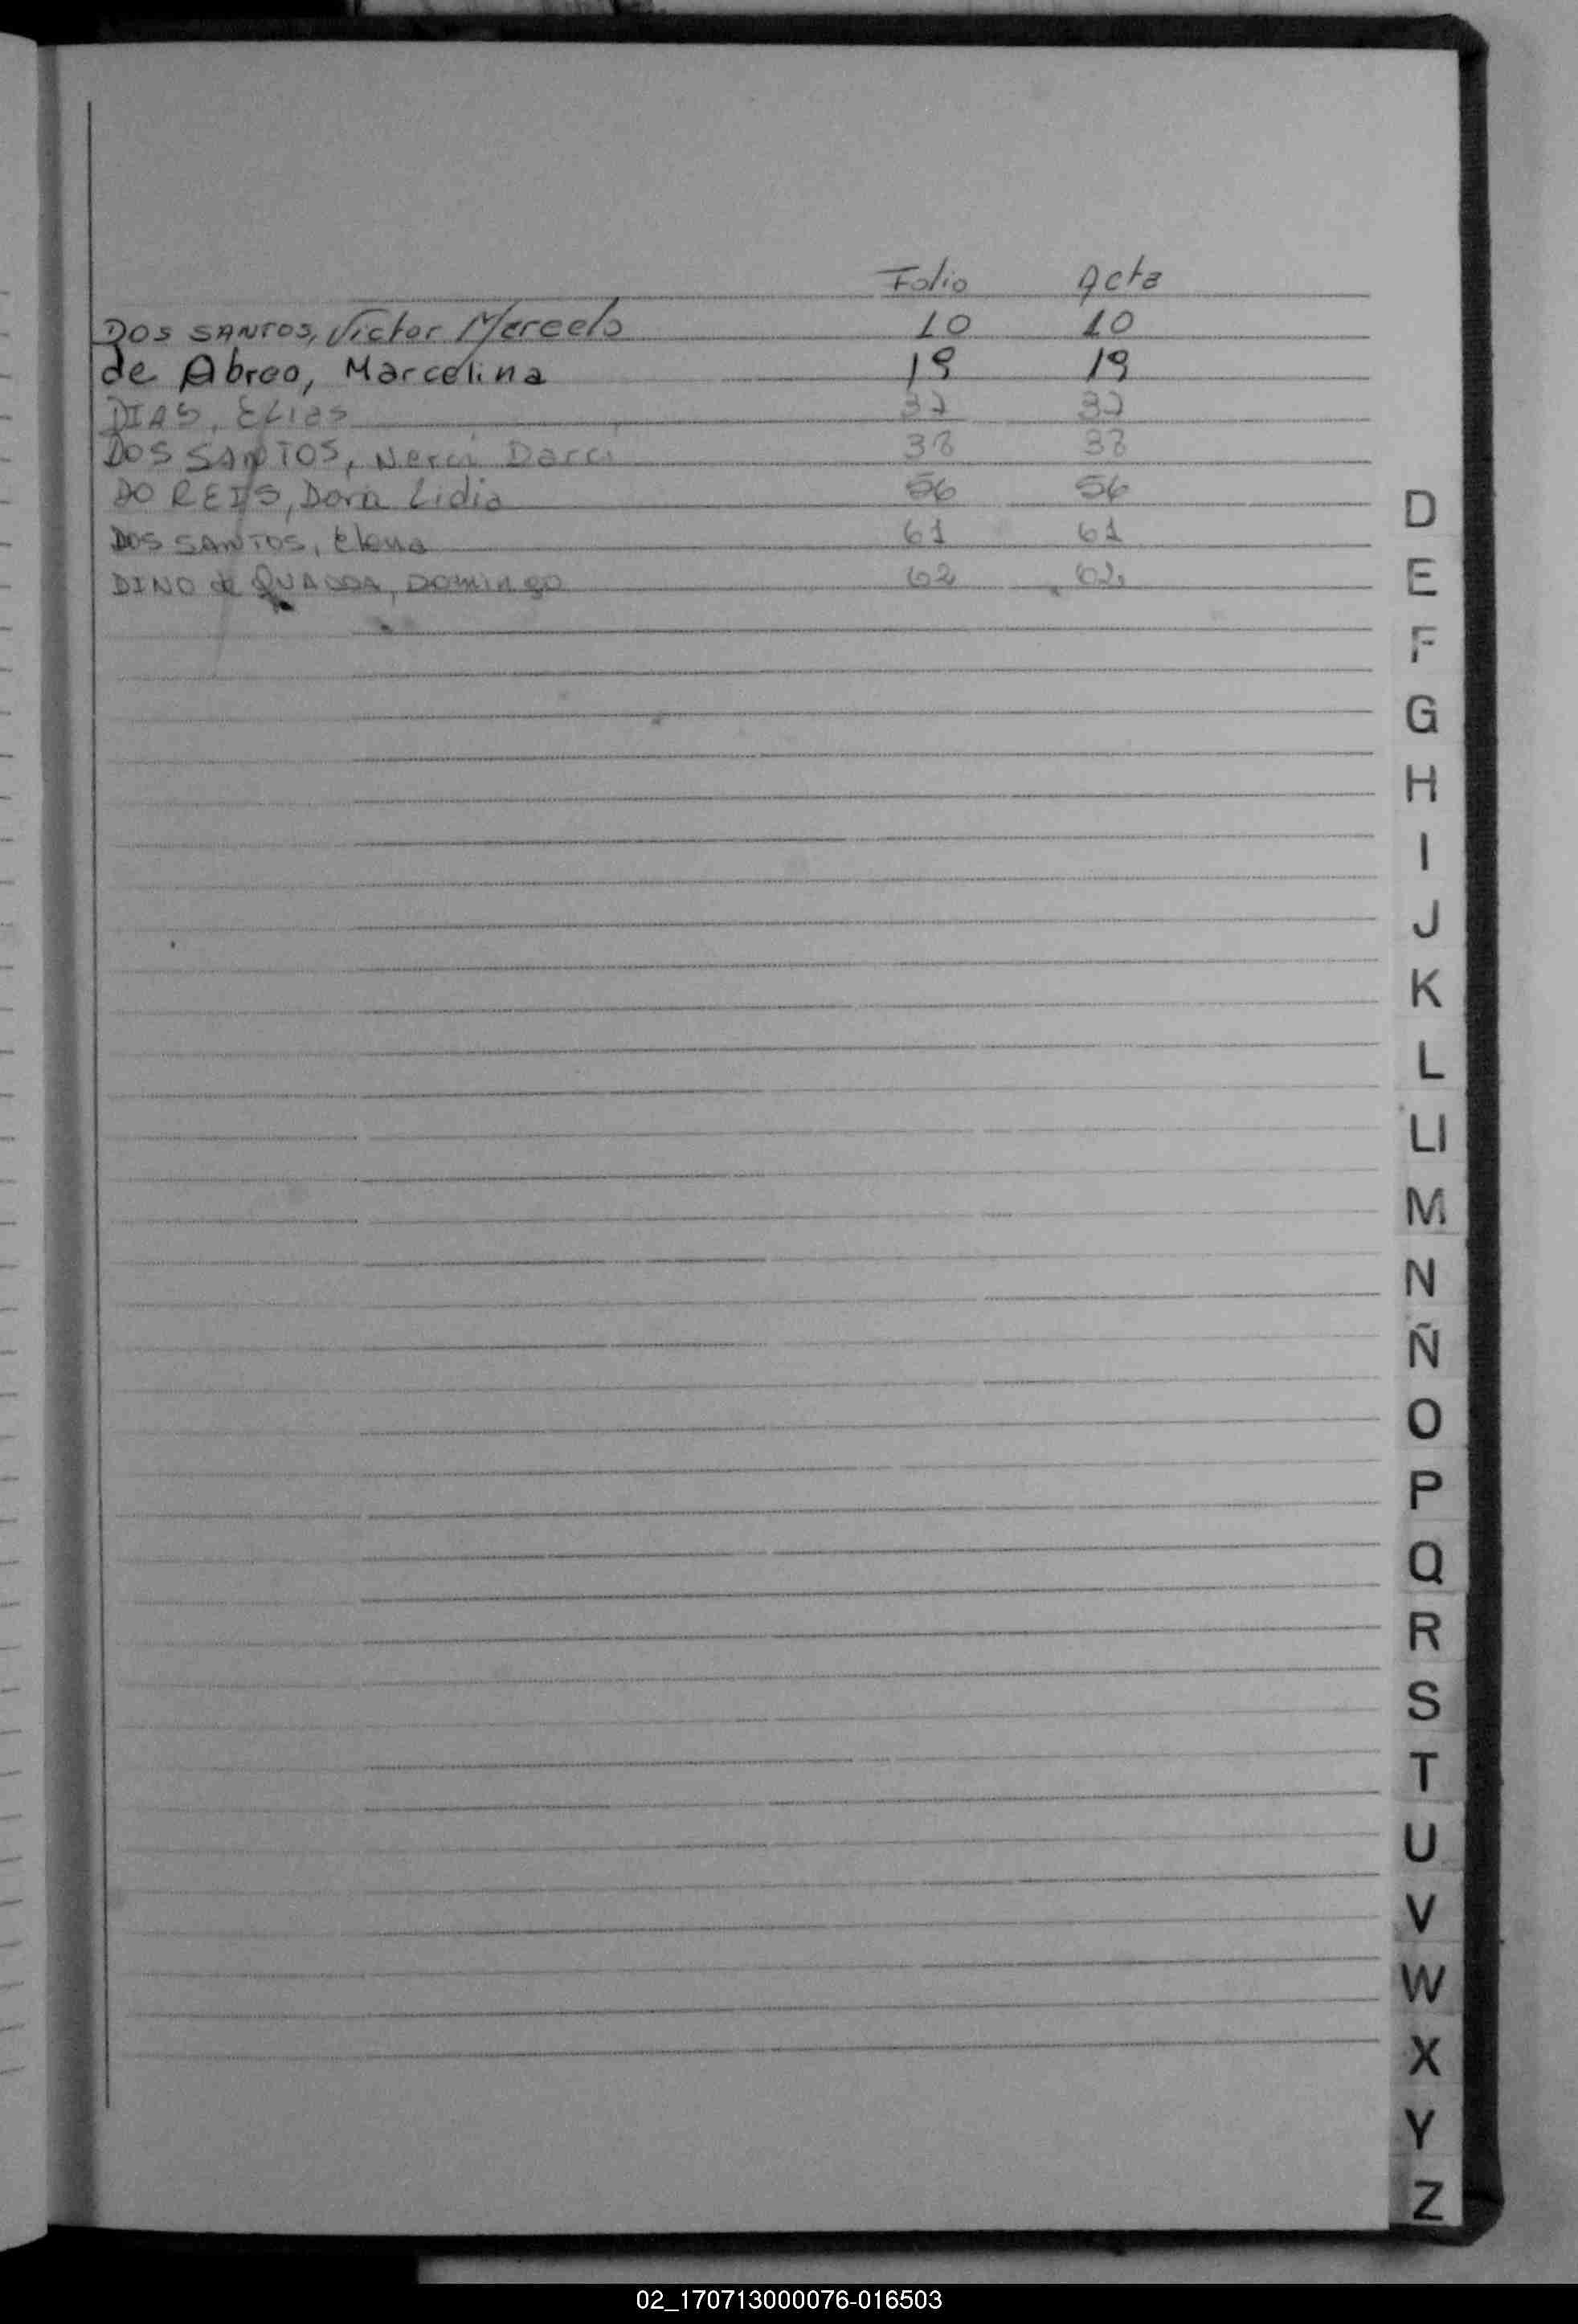 Folio Acta
DOS SANTOS, Victor Marcelo 10 10
de Abreo, Marcelina 19 19
DIAS, Elias 37 37
DOS SANTOS, Nerci Darci 38 38
DO REIS, Dora Lidia 56 56
DOS SANTOS, Elena 61 61
DINO de QUADDA, Domingo 62 62
D
E
F
G
H
I
J
K
L
Ll
M
N
Ñ
O
P
Q
R
S
T
U
V
W
X
Y
Z
02_170713000076-016503